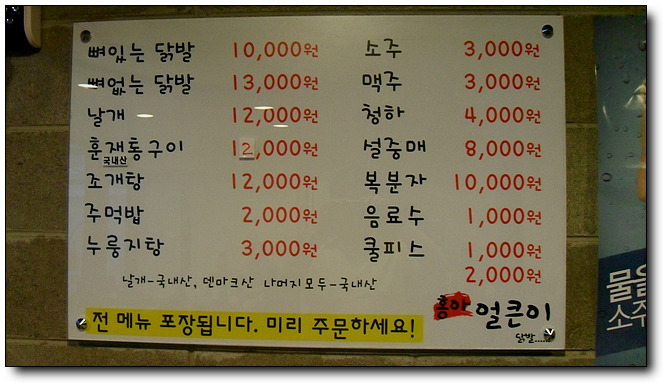 뼈있는 닭발 10,000원
뼈없는 닭발 13,000원
날개 12,000원
훈재통구이 12,000원
국내산
조개탕 12,000원
주먹밥 2,000원
누룽지탕 3,000원
소주 3,000원
맥주 3,000원
청하 4,000원
설중매 8,000원
복분자 10,000원
음료수 1,000원
쿨피스 1,000원
2,000원
날개-국내산, 덴마크산 나머지모두-국내산
전 메뉴 포장됩니다. 미리 주문하세요!
홍아 얼큰이
닭발.....
물을
소주